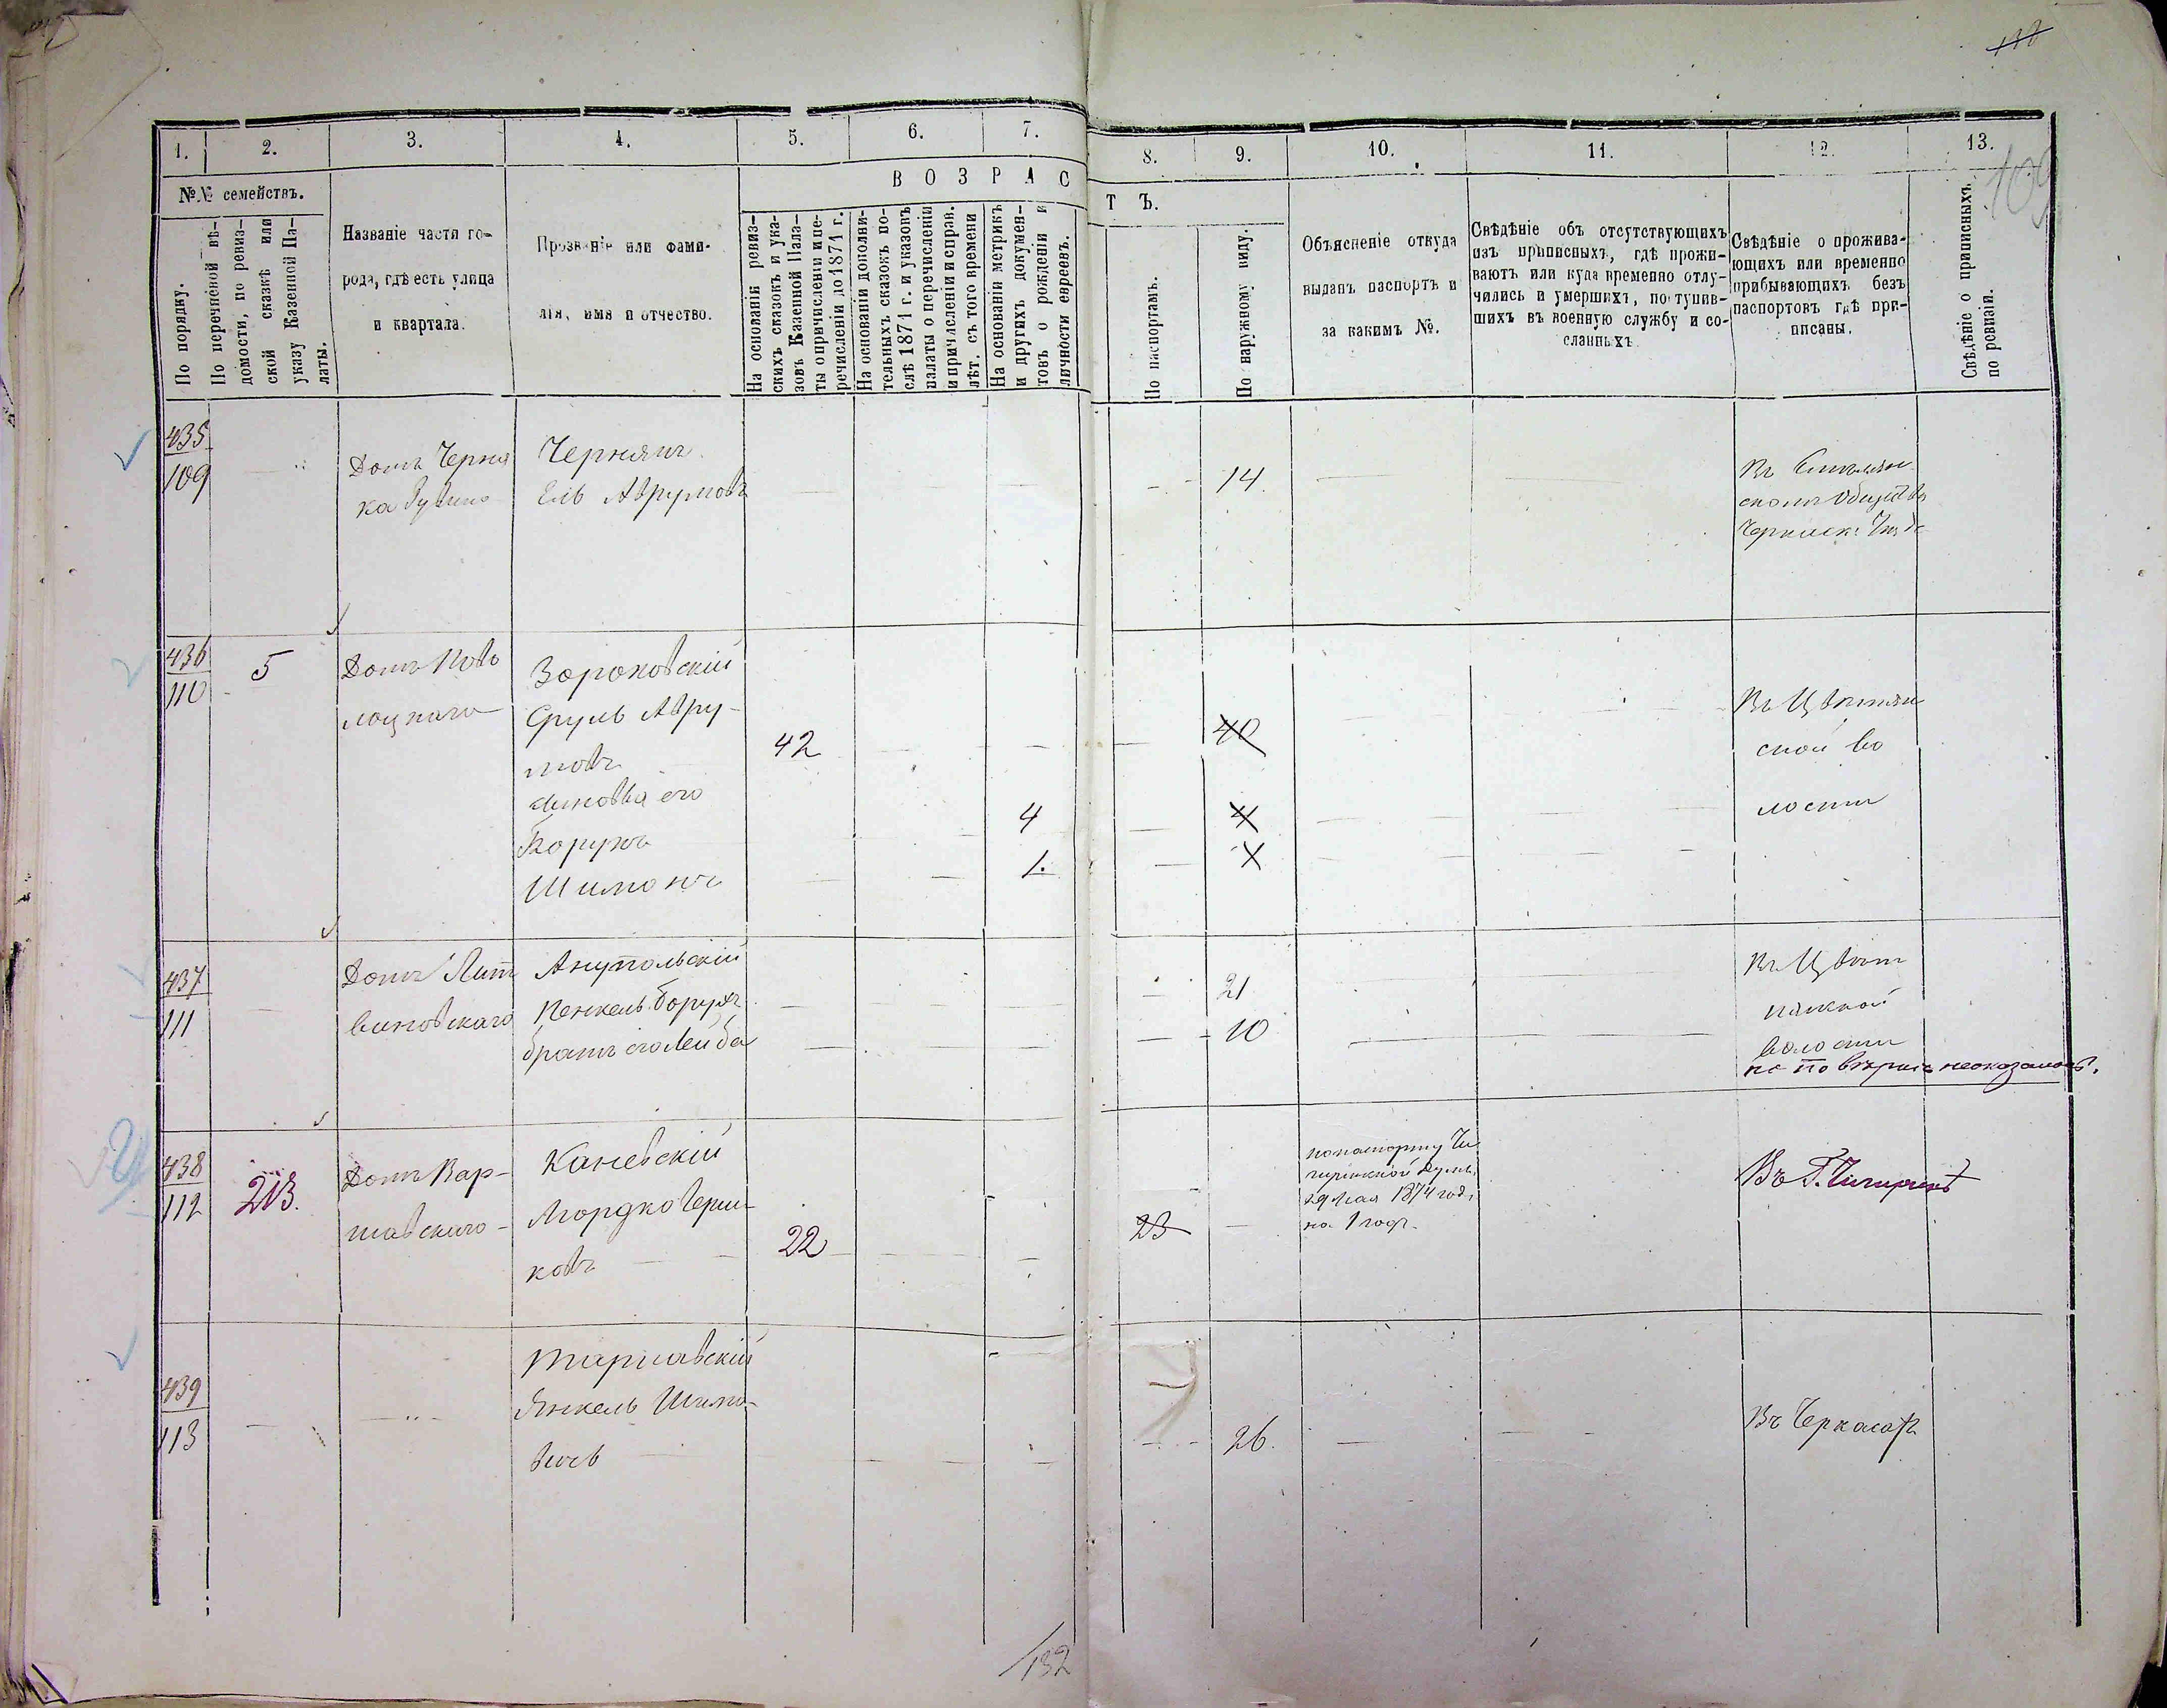 109
1. 2. 3. 4. 5. 6. 7. 8. 9. 10. 11. 12. 13.
№№ семействъ.
По порядку.
По перечневой вѣ-
домости, по ревиз-
ской сказкѣ или
указу Казенной Па-
латы.
Названіе части го-
рода, гдѣ есть улица
и квартала.
Прозваніе или фами-
лія, имя и отчество.
ВОЗРАС
ТЪ.
На основаніи ревиз-
скихъ сказокъ и ука-
зовъ Казенной Пала-
ты о причисленіи и пе-
речисленіи до 1871 г.
На основаніи дополни-
тельныхъ сказокъ по-
слѣ 1871 г. и указовъ
палаты о перечисленіи
и причисленіи и справ.
лѣт. съ того времени
На основаніи метрикъ
и другихъ докумен-
товъ о рожденіи и
личности евреевъ.
По паспортамъ.
По наружному виду.
Объясненіе откуда
выданъ паспортъ и
за какимъ №.
Свѣдѣніе объ отсутствующихъ
изъ приписныхъ, гдѣ прожи-
ваютъ или куда временно отлу-
чились и умершихъ, поступив-
шихъ въ военную службу и со-
сланныхъ
Свѣдѣніе о прожива-
ющихъ или временно
прибывающихъ безъ
паспортовъ гдѣ при-
писаны.
Свѣдѣніе о приписныхъ
по ревизіи.
435
109
Домъ Черня
ка
Чернякъ
Ель Аврумовъ
14.
Въ
скомъ Обществѣ
436
110
5
Домъ Ново
Зороховскій
Сруль Авру-
мовъ
сыновья его
Борухъ
Шимонъ
42
4
1.
40
4
Въ Цвѣтнян
ской во
лости
437
111
Домъ Лит
виновскаго
Анупольскій
Пенкель Борухъ
братъ его Лейба
21
10
Въ Цвѣт
нянской
волости
но по вѣрки неоказалось.
438
112
213.
Домъ Вар-
шавскаго
Каневскій
Мордко Герш
ковъ
22
23
по паспорту Чи
гиринской Думы
29 мая 1874 года
на 1 годъ.
Въ Г. Чигиринѣ
439
113
Таршавскій
Янкель Шимо-
вичъ
26.
Въ Черкасахъ
132